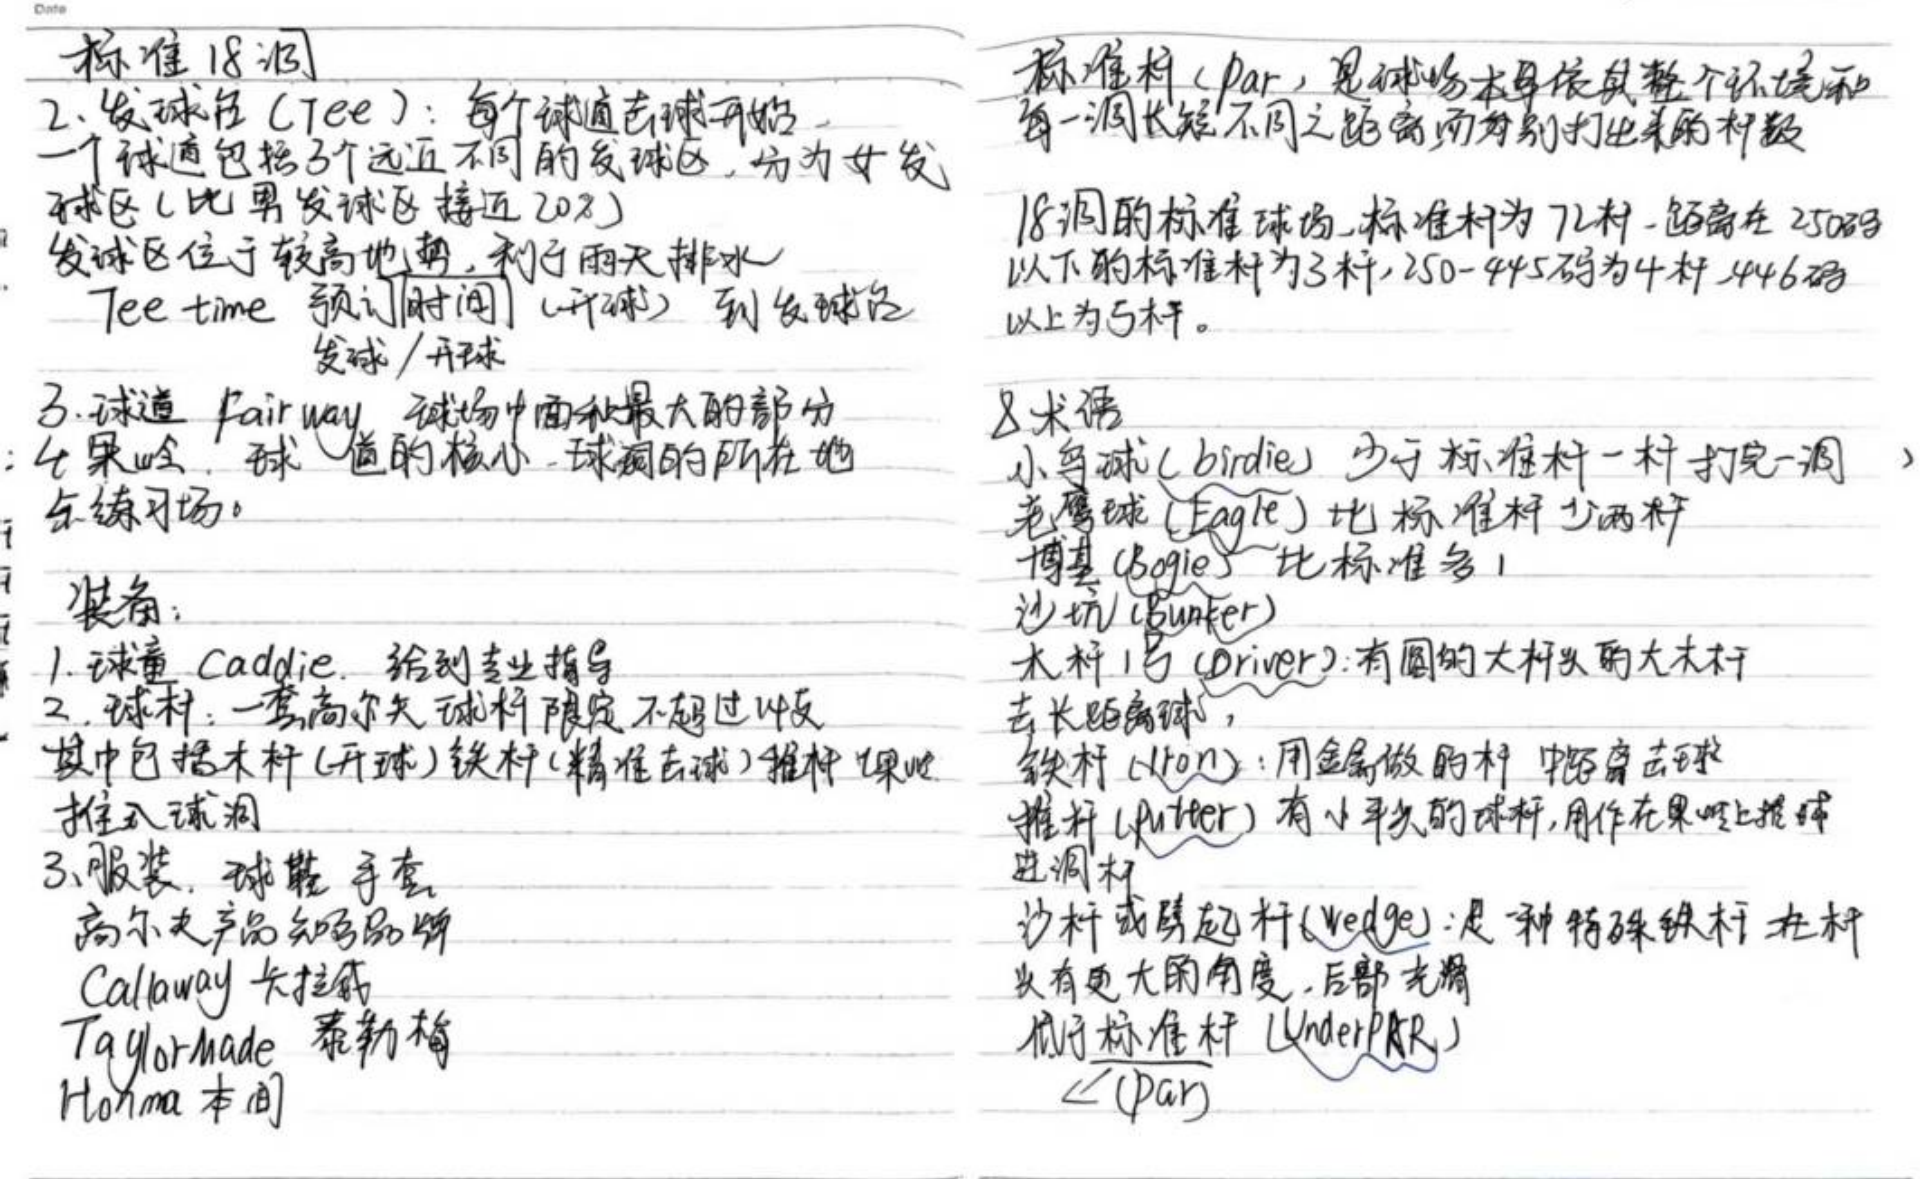 Date
标准18洞
2、发球台（Tee）：每个球道击球开始
一个球道包括3个远近不同的发球区，分为女发
球区（比男发球区接近20%）
发球区位于较高地势，利于雨天排水
Tee time 预订时间（开球） 到发球台
发球/开球
3.球道 Fairway 球场中面积最大的部分
4 果岭. 球 道的核心、球洞的所在地
5.练习场。
装备：
1.球童 Caddie. 给到专业指导
2.球杆：一套高尔夫球杆限定不超过14支
其中包括木杆（开球）铁杆（精准击球）推杆（果岭
推入球洞
3、服装. 球鞋 手套
高尔夫产品知名品牌
Callaway 卡拉威
TaylorMade 泰勒梅
Honma 本间
标准杆（Par，是球场本身依其整个环境和
每一洞长短不同之距离而分别打出来的杆数
18洞的标准球场、标准杆为72杆、距离在250码
以下的标准杆为3杆，250-445码为4杆、446码
以上为5杆。
8 术语
小鸟球（birdie）少于标准杆一杆打完一洞
老鹰球（Eagle）比标准杆少两杆
博基（Bogie） 比标准多1
沙坑（Bunker）
木杆1号（Driver）：有圆的大杆头的大木杆
击长距离球，
铁杆（Iron）：用金属做的杆 中距离击球
推杆（putter）有小平头的球杆，用作在果岭上推球
进洞杆
沙杆或劈起杆（wedge）：是一种特殊铁杆 在杆
头有更大的角度，后部光滑
低于标准杆（UnderPAR）
（Par）